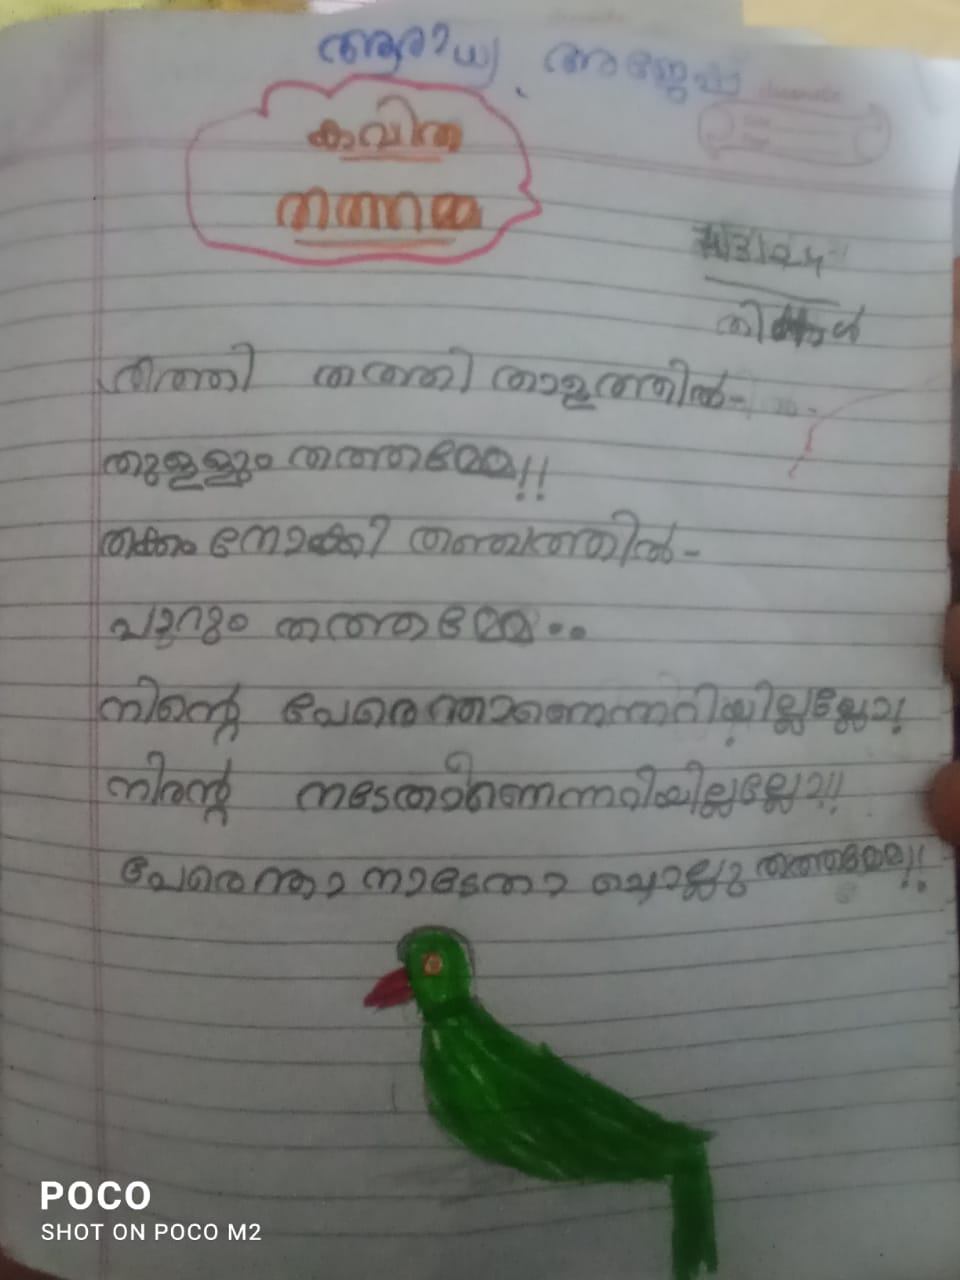 ആരാധ്യ. അജേഷ്
കവിത
തത്തമ്മ
തത്തി തത്തി താളത്തിൽ-
തുള്ളും തത്തമ്മേ!!
തക്കം നോക്കി തഞ്ചത്തിൽ-
പാറും തത്തമ്മേ..
നിന്റെ പേരെന്താണെന്നറിയില്ലല്ലോ!
നിന്റെ നാടേതാണെന്നറിയില്ലല്ലോ!!
പേരെന്താ നാടേതാ ചൊല്ലൂ തത്തമ്മേ!!
POCO
SHOT ON POCO M2